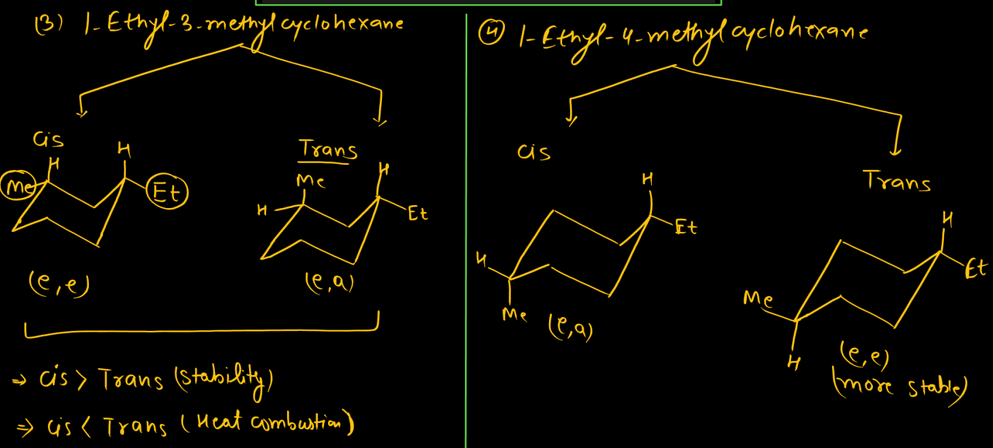 (3) 1-Ethyl-3-methylcyclohexane
Cis
H
H
Me
Et
(e,e)
Trans
Me
H
H
Et
(e,a)
⇒ Cis > Trans (Stability)
⇒ Cis < Trans (Heat combustion)
(4) 1-Ethyl-4-methylcyclohexane
Cis
H
Et
H
Me
(e,a)
Trans
H
Et
Me
H
(e,e)
(more stable)